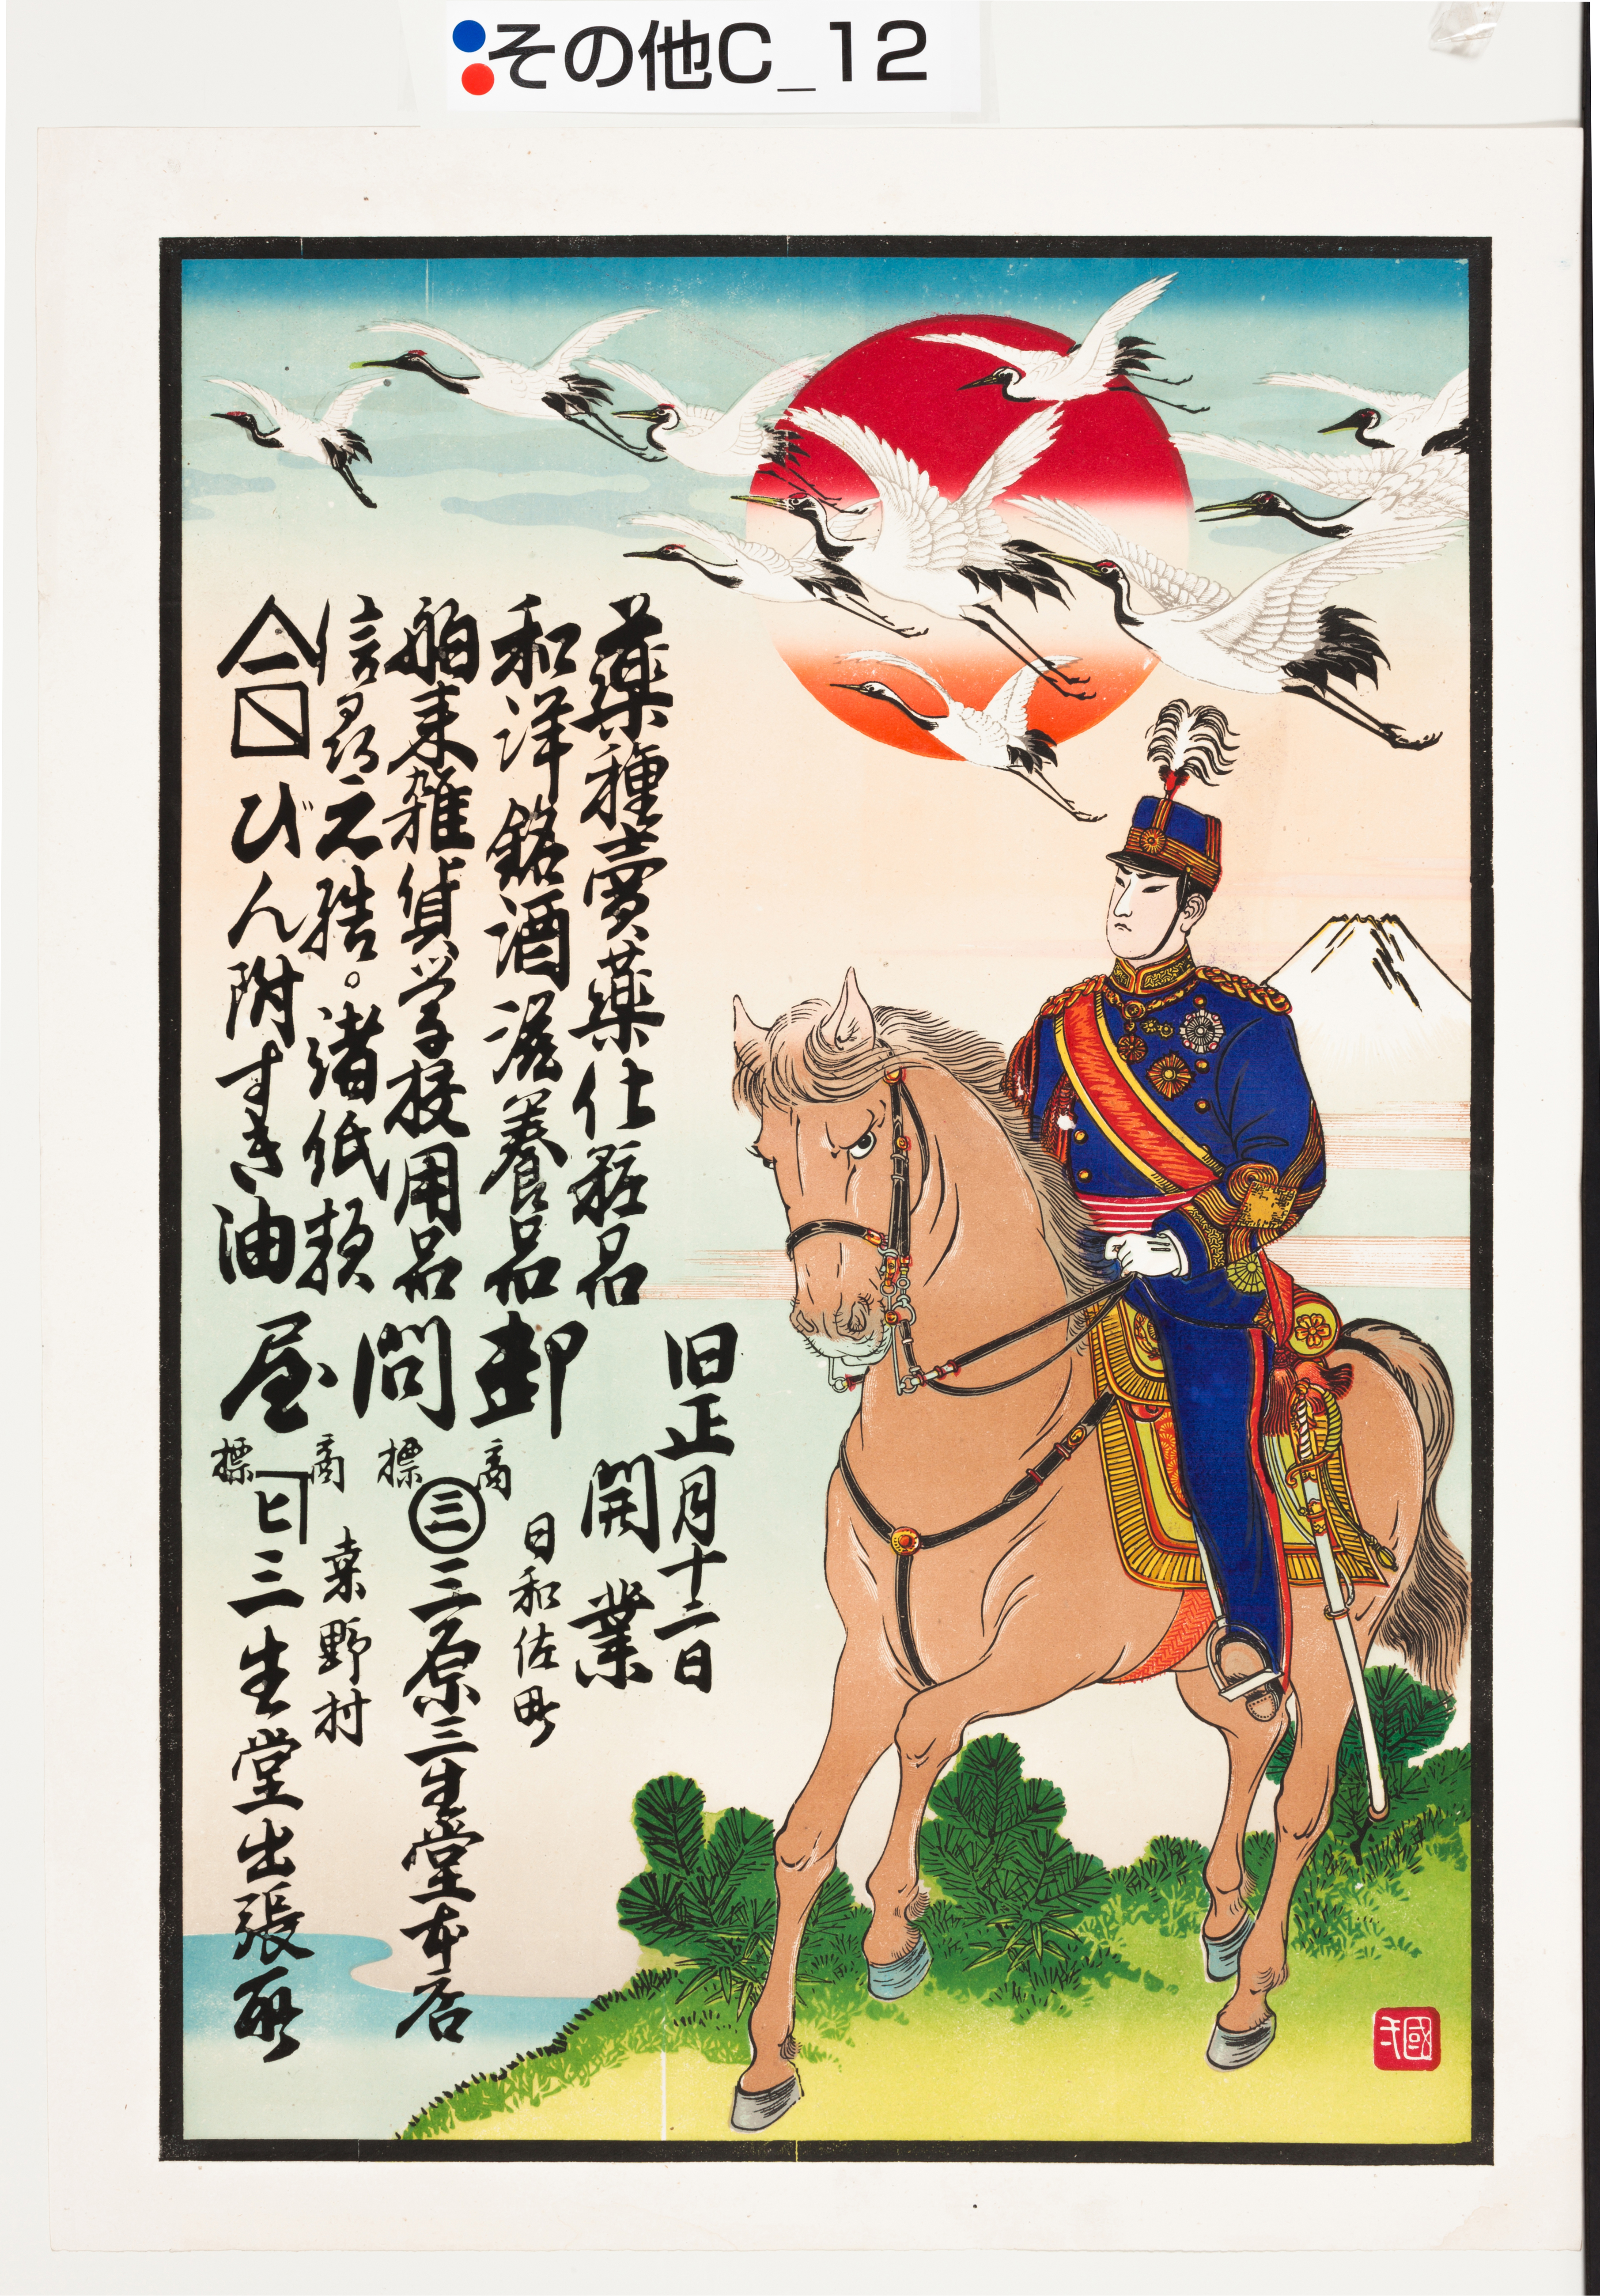 その他C_12
薬種賣薬化粧品
和洋銘酒滋養品
舶来雑貨学校用品
諸紙類
びん附すき油
卸問屋
旧正月十二日
開業
日和佐町
商標
三
三原三生堂本店
桒野村
商標
ヒ
三生堂出張所
國